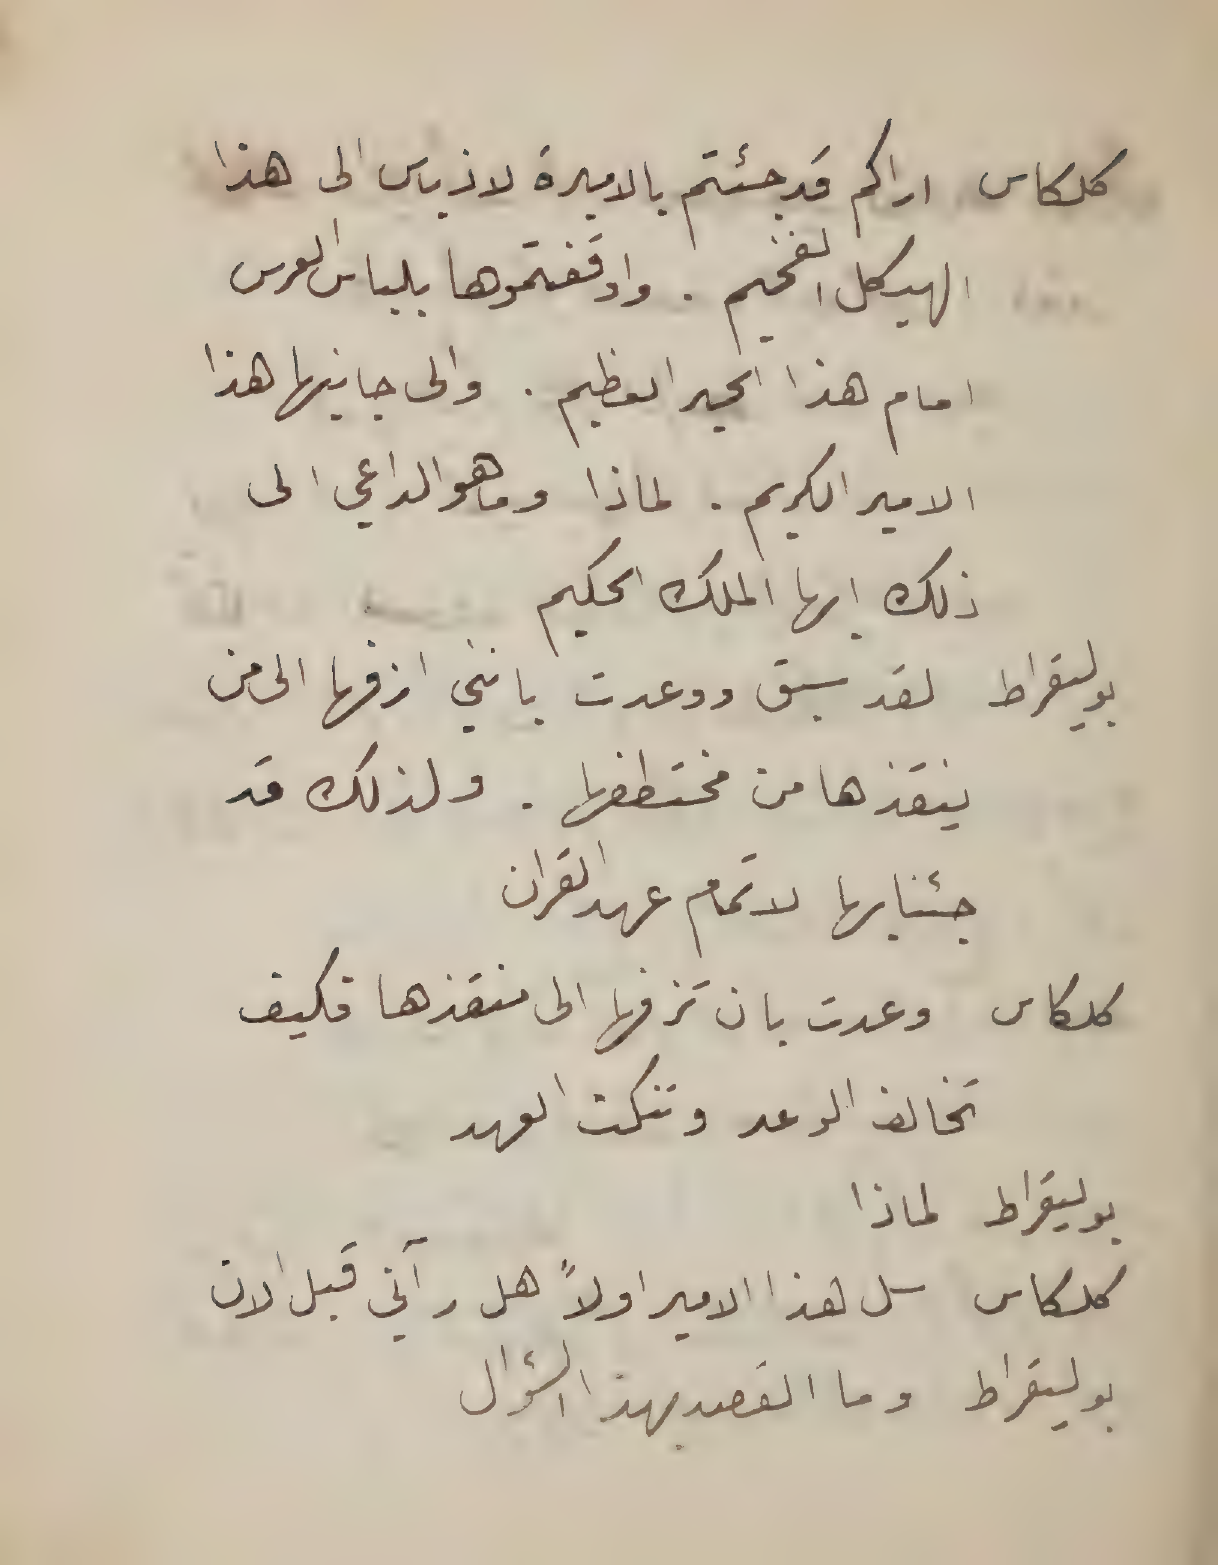 كلكاس اراكم قد جئتم بالاميرة لاذياس الى هذا
الهيكل الفخيم . واوقفتموها بلباس العرس
امام هذا الحبر العظيم . والى جانبها هذا
الامير الكريم . لماذا وما هو الداعي الى
ذلك ايها الملك الحكيم
بوليقراط لقد سبق ووعدت بانني ازفها الى من
ينقذها من مختطفها . ولذلك قد
جئنا بها لاتمام عهد القران
كلكاس وعدت بان تزفها الى منقذها فكيف
تخالف الوعد وتنكث العهد
بوليقراط لماذا
كلكاس سل هذا الامير اولاً هل رآني قبل الان
بوليقراط وما القصد بهذا السؤال